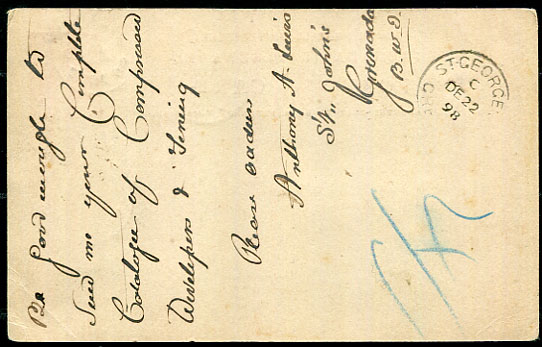 Be good enough to
Send me your Complete
Catalogue of Compressed
Developers & Toning
Please address
Anthony A. Lewis
St. John's
Grenada
B.W.I.
ST. GEORGE
C
DE 22
98
GRE